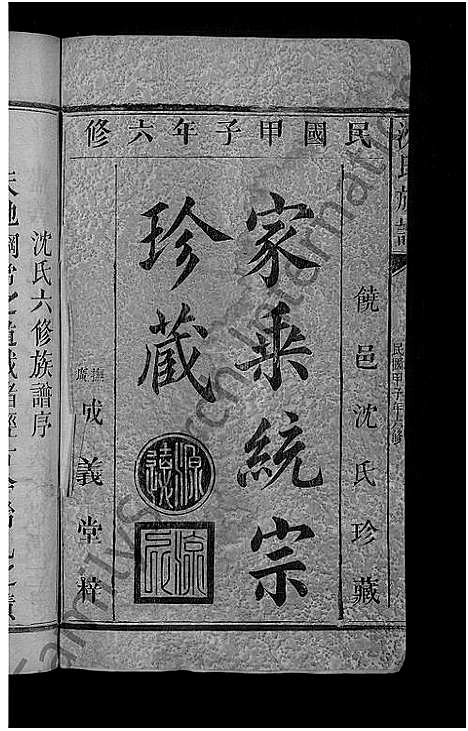 民國甲子年六修
饒邑沈氏珍藏
家乘統宗
珍藏
源遠
流長
成義堂梓
沈氏族譜
民國甲子年六修
沈氏六修族譜序